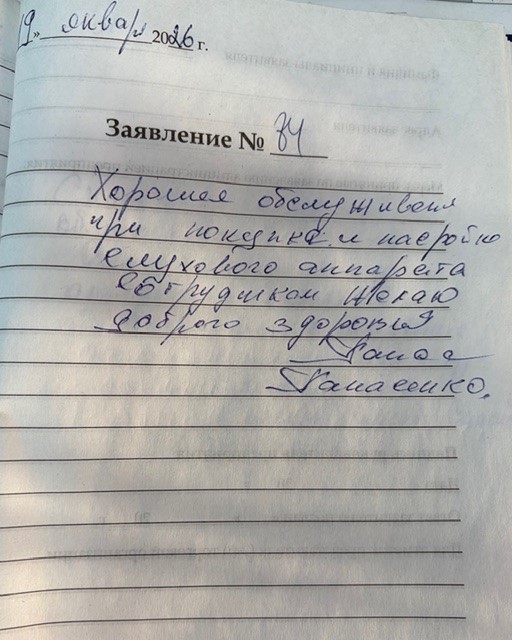 9» января 2026 г.
Заявление № 34
Хорошее обслуживаня
при покупка и настройко
слухового аппарата
сотрудником желаю
доброго здоровья
Панасенко.